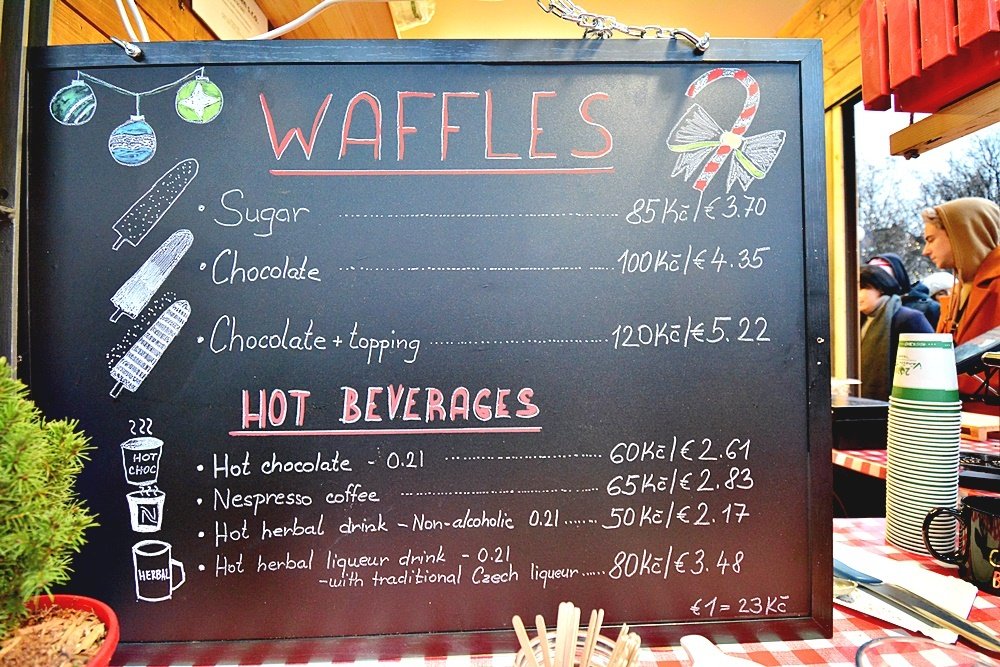 WAFFLES
• Sugar ........ 85Kč/€3.70
• Chocolate ........ 100Kč/€4.35
• Chocolate + topping ........ 120Kč/€5.22
HOT BEVERAGES
HOT CHOC
• Hot chocolate - 0.2l ........ 60Kč/€2.61
N
• Nespresso coffee ........ 65Kč/€2.83
• Hot herbal drink - Non-alcoholic 0.2l ........ 50Kč/€2.17
HERBAL
• Hot herbal liqueur drink - 0.2l
- with traditional Czech liqueur ..... 80Kč/€3.48
€1 = 23Kč